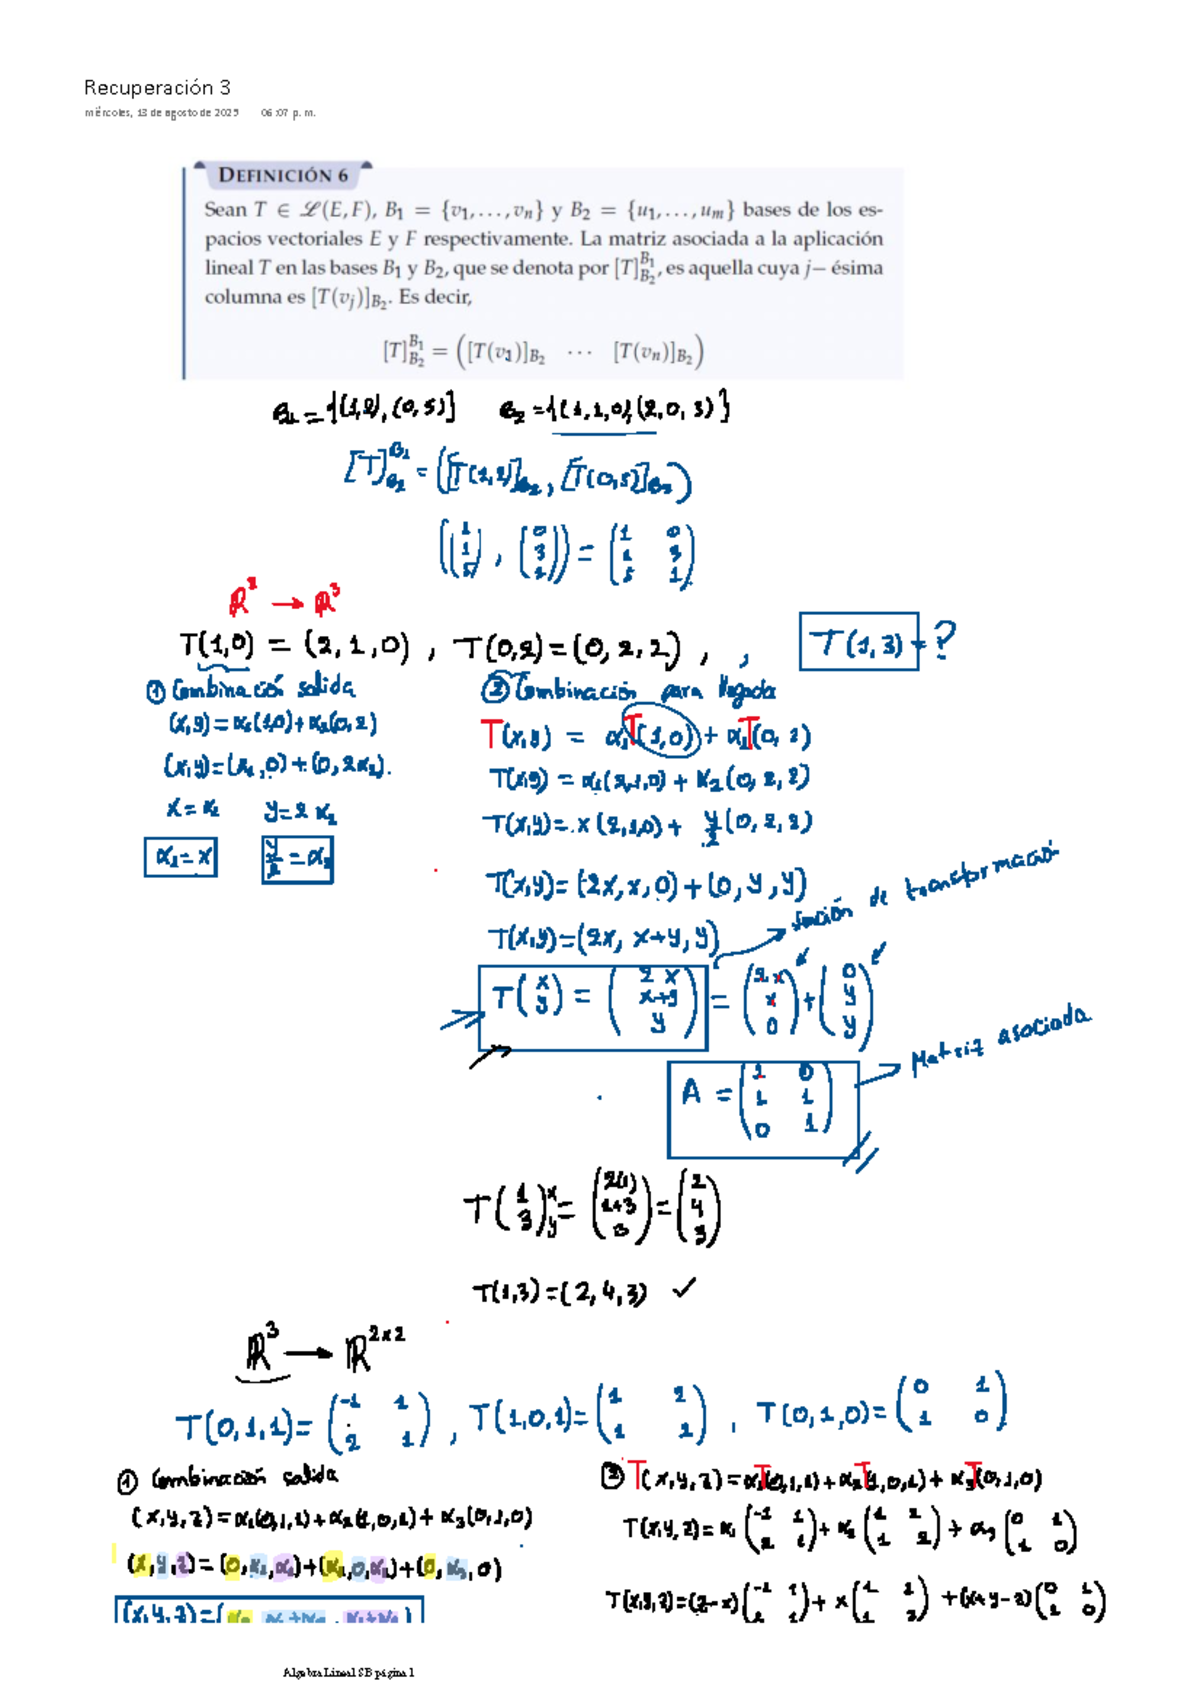 Recuperación 3
miércoles, 13 de agosto de 2025 06:07 p. m.
DEFINICIÓN 6
Sean T ∈ ℒ(E, F), B₁ = {v₁, . . . , vₙ} y B₂ = {u₁, . . . , uₘ} bases de los es-
pacios vectoriales E y F respectivamente. La matriz asociada a la aplicación
lineal T en las bases B₁ y B₂, que se denota por [T]^{B₁}_{B₂}, es aquella cuya j− ésima
columna es [T(vⱼ)]_{B₂}. Es decir,
[T]^{B₁}_{B₂} = ([T(v₁)]_{B₂} ⋯ [T(vₙ)]_{B₂})
B₁ = {(1,2), (0,5)} B₂ = {(1,1,0)(2,0,3)}
[T]^{B₁}_{B₂} = ([T(1,2)]_{B₂}, [T(0,5)]_{B₂})
((1 1 5), (0 3 1)) = (1 0 / 1 3 / 5 1)
ℝ² → ℝ³
T(1,0) = (2,1,0) , T(0,2) = (0,2,2) , , T(1,3) = ?
① Combinación salida
(x,y) = α₁(1,0) + α₂(0,2)
(x,y) = (α₁,0) + (0,2α₂).
x = α₁ y = 2α₂
α₁ = x y/2 = α₂
② Combinación para llegada
T(x,y) = α₁T(1,0) + α₂T(0,2)
T(x,y) = α₁(2,1,0) + α₂(0,2,2)
T(x,y) = x(2,1,0) + y/2(0,2,2)
T(x,y) = (2x,x,0) + (0,y,y)
T(x,y) = (2x, x+y, y)
función de transformación
T(x / y) = (2x / x+y / y) = (2x / x / 0) + (0 / y / y)
A = (2 0 / 1 1 / 0 1)
Matriz asociada
T(1 / 3) x y = (2(1) / 1+3 / 3) = (2 / 4 / 3)
T(1,3) = (2,4,3) ✓
ℝ³ → ℝ^{2x2}
T(0,1,1) = (-1 1 / 2 1) , T(1,0,1) = (1 2 / 1 2) , T(0,1,0) = (0 1 / 1 0)
① Combinación salida
(x,y,z) = α₁(0,1,1) + α₂(1,0,1) + α₃(0,1,0)
(x,y,z) = (0,α₁,α₁) + (α₂,0,α₂) + (0,α₃,0)
(x,y,z) = (α₂, α₁+α₃, α₁+α₂)
② T(x,y,z) = α₁T(0,1,1) + α₂T(1,0,1) + α₃T(0,1,0)
T(x,y,z) = α₁(-1 1 / 2 1) + α₂(1 2 / 1 2) + α₃(0 1 / 1 0)
T(x,y,z) = (z-x)(-1 1 / 2 1) + x(1 2 / 1 2) + (x+y-z)(0 1 / 1 0)
Algebra Lineal SB página 1